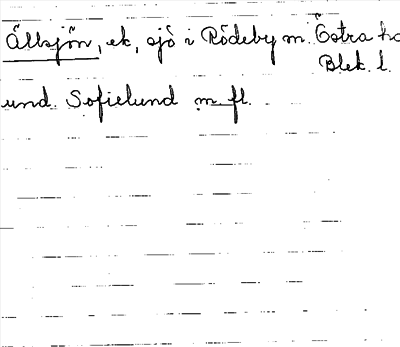 Ällsjön, ek, sjö i Rödeby m. Östra
Blek. l.
und. Sofielund m. fl.